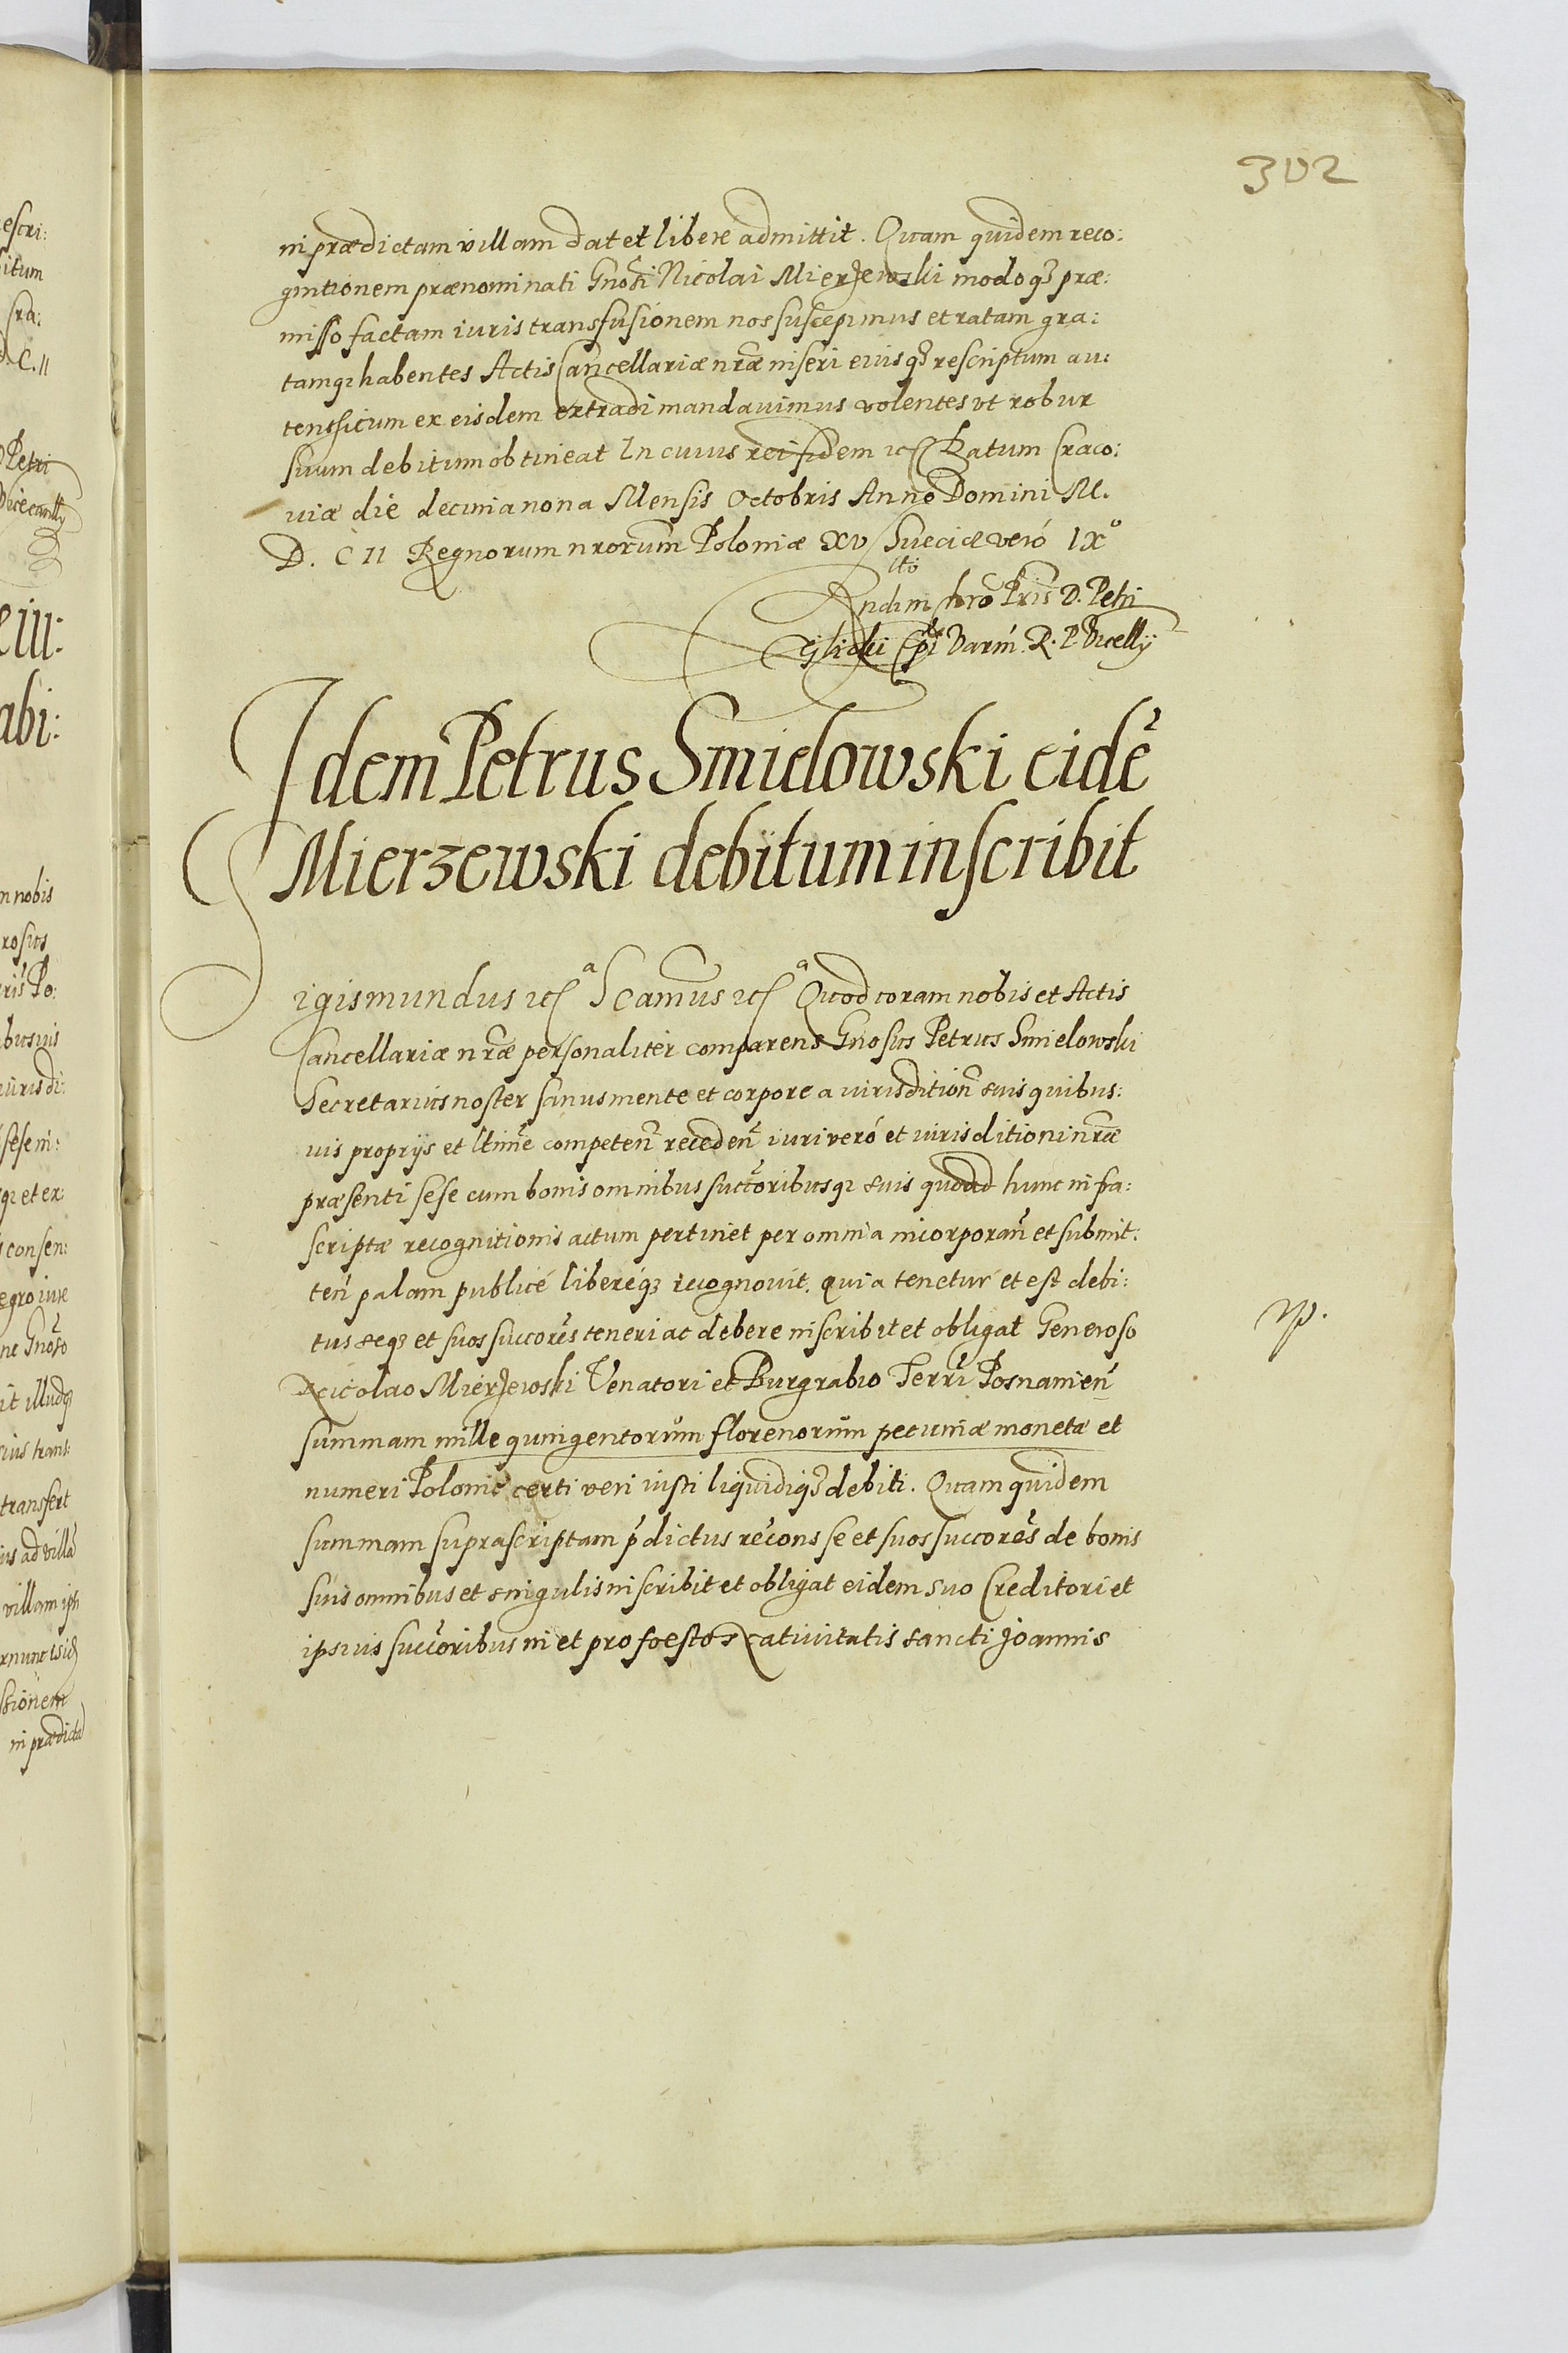 302
in prædictam villam dat et libere admittit. Quam quidem reco:
gnitionem prænominati Gnosi Nicolai Mierzewski modoq3 præ:
misso factam iuris transfusionem nos suscepimus et ratam gra:
tamq3 habentes Actis Cancellariæ nræ inseri eiusq3 rescriptum au:
tenthicum ex eisdem extradi mandauimus volentes vt robur
suum debitum obtineat In cuius rei fidem etc Datum Craco:
uiæ die decima nona Mensis Octobris Anno Domini M.
D. C II Regnorum nrorum Poloniæ XV Sueciæ veró IX°
D. Petri
Eppi Varm. R. P. Vicecelly
Idem Petrus Smielowski eidē
Mierzewski debitum inscribit
Sigismundus etc a Scamus etc a Quod coram nobis et Actis
Cancellariæ nræ personaliter comparens Gnosus Petrus Smielowski
Secretarius noster sanus mente et corpore a iurisdition suis quibus:
uis proprijs et ltime competen receden iuri veró et iurisditioni nræ
præsenti sese cum bonis omnibus succoribusq3 suis quoad hunc infra:
scriptæ recognitionis actum pertinet per omnia incorporan et submit:
ten palam publicé liberéq3 recognouit. quia tenetur et est debi:
tus seq3 et suos succores teneri ac debere inscribit et obligat Generoso
Nicolao Mierzewski Venatori et Burgrabio Terr Posnanien
rp.
summam mille quingentorum florenorum pecuniæ monetæ et
numeri Polonic certi veri iusti liquidiq3 debiti. Quam quidem
summam suprascriptam pdictus recons se et suos succores de bonis
suis omnibus et singulis inscribit et obligat eidem suo Creditori et
ipsius succoribus in et pro foesto Natiuitatis sancti Joannis